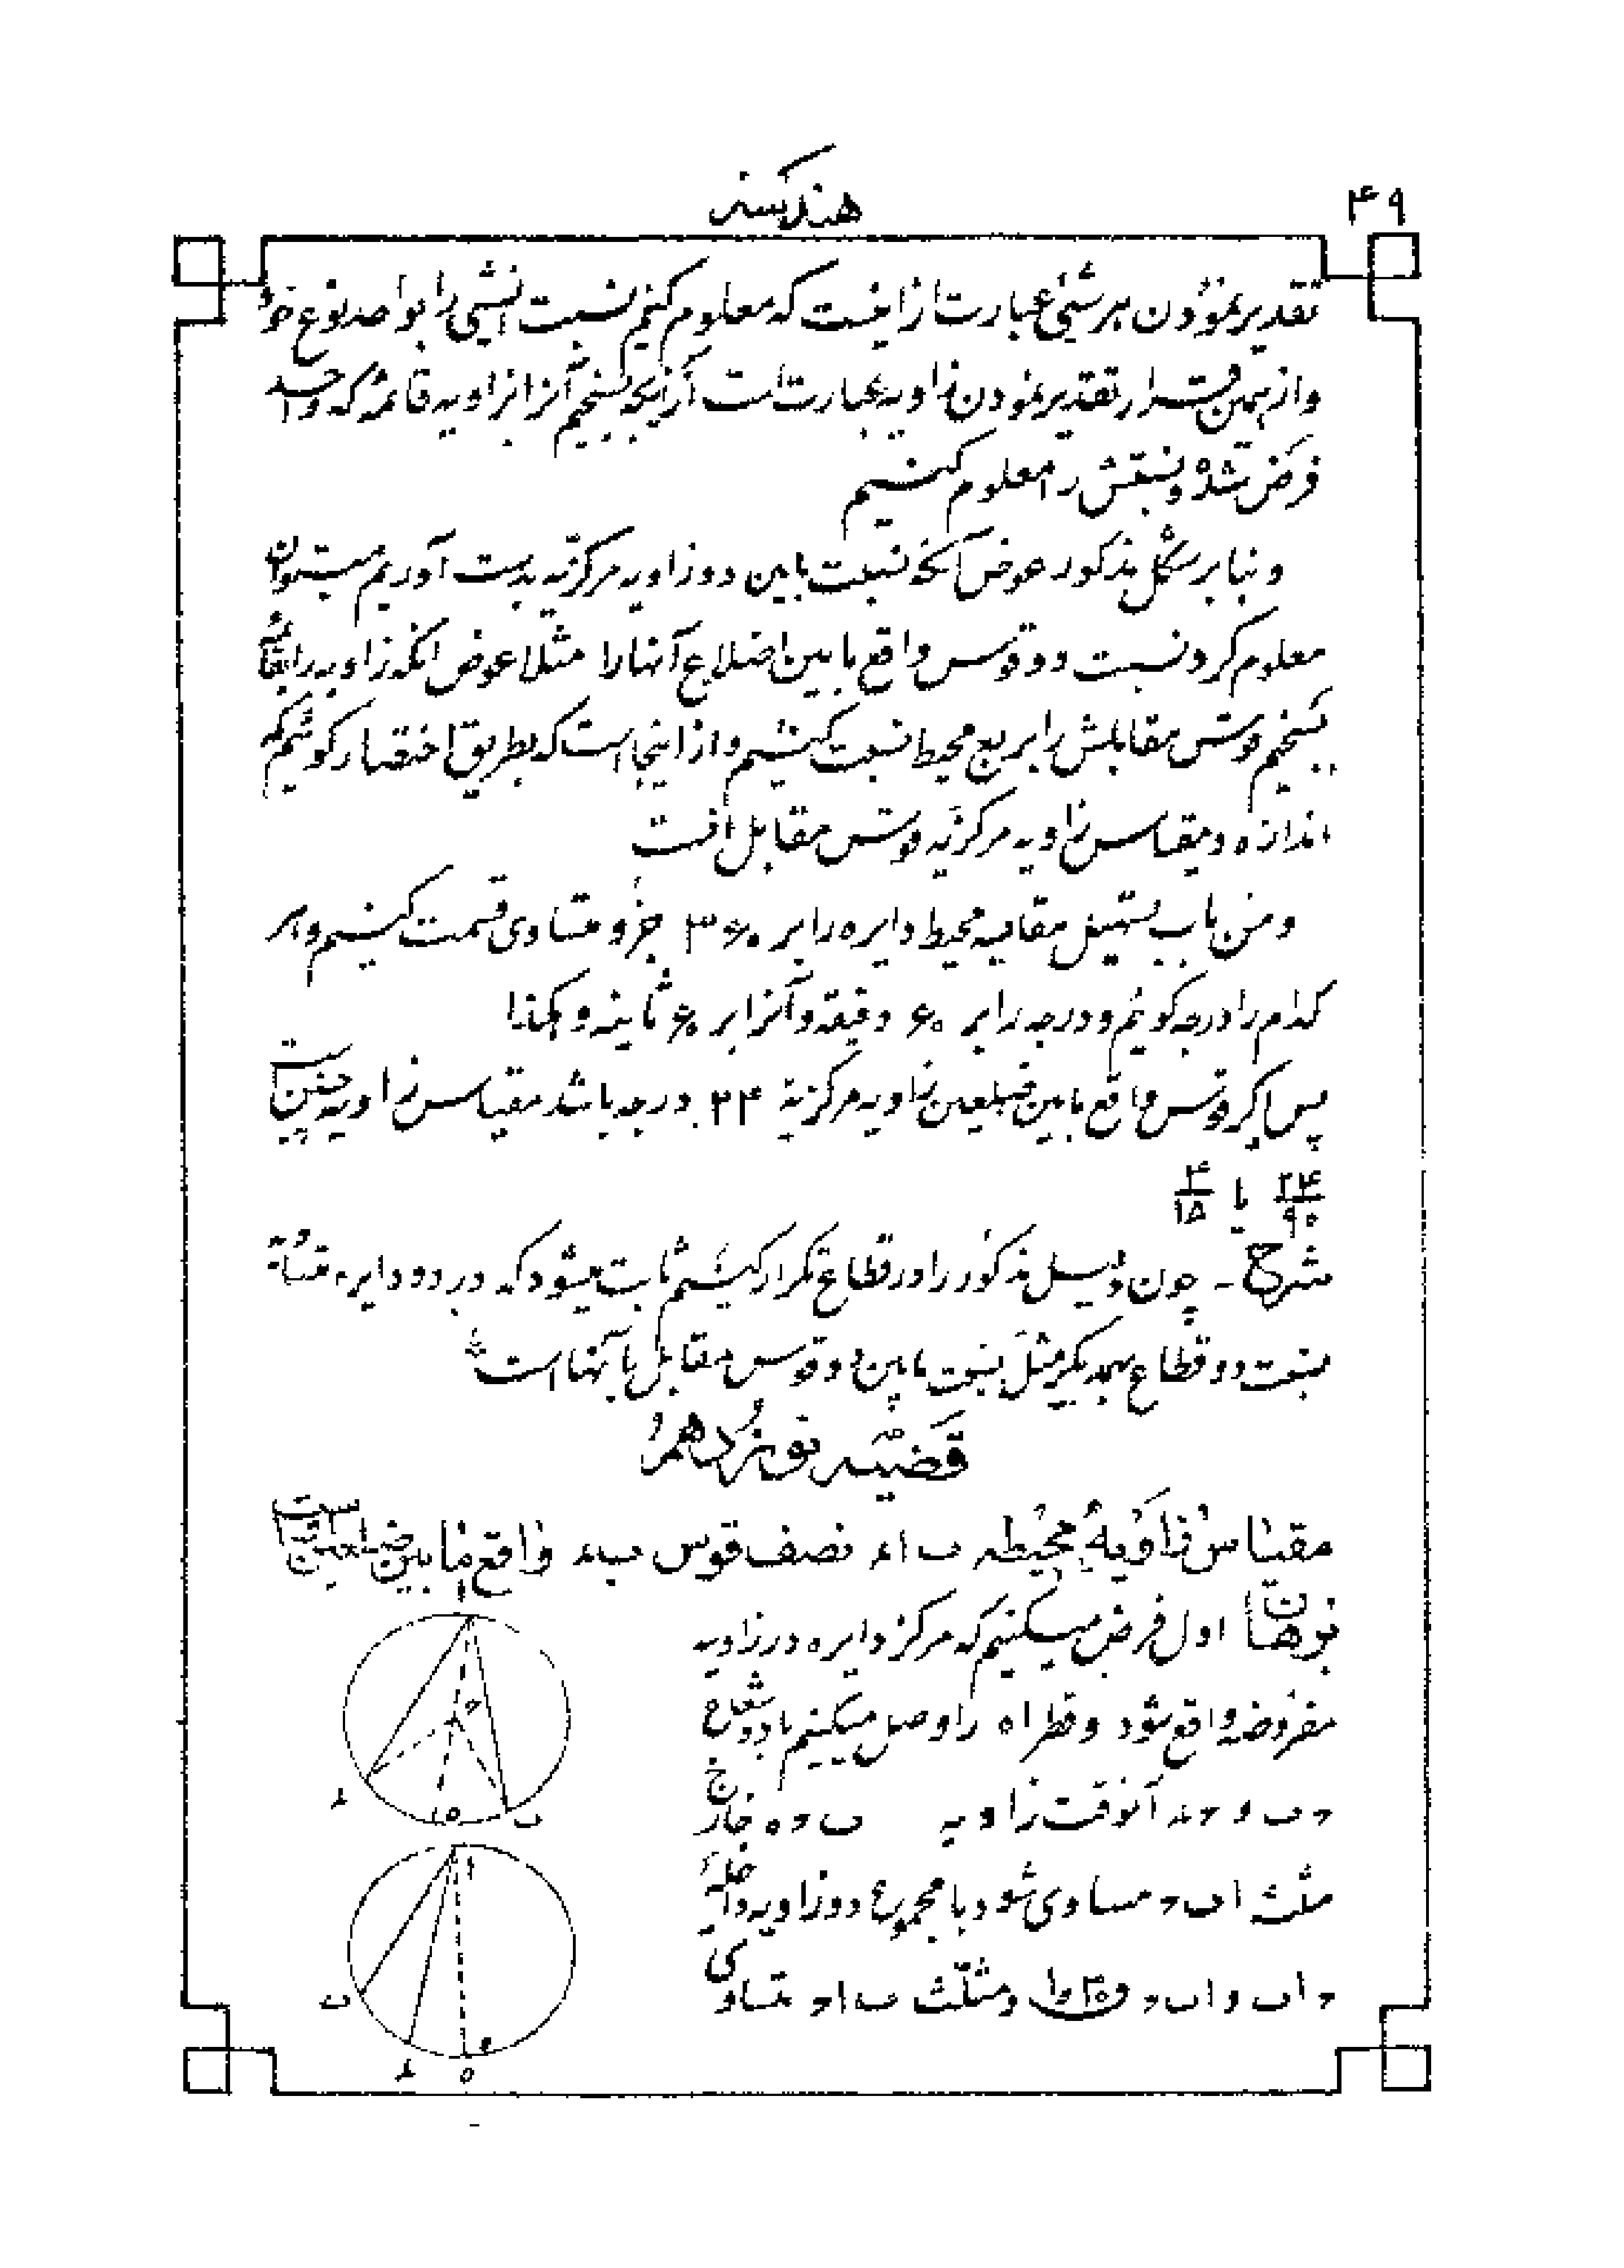 هندسه
۴۹
تقدیر نمودن هر شیئی عبارت از اینست که معلوم کنیم نسبت آنشیی را بواحد نوع خود
و از همین قرار تقدیر نمودن زاویه عبارت است از اینکه بسنجیم آنرا بزاویه قائمه که واحد
فرض شده و نسبتش را معلوم کنیم
و بنا بر شکل مذکور عوض آنکه نسبت مابین دو زاویه مرکزیه بدست آوریم میتوان
معلوم کرد نسبت دو قوس واقع مابین اضلاع آنها را مثلا عوض انکه زاویه را بقائمه
بسنجیم قوس مقابلش را بربع محیط نسبت کنیم و از اینجا است که بطریق اختصار کوئیم که
اندازه و مقیاس زاویه مرکزیه قوس مقابل آنست
و من باب تسهیل مقایسه محیط دایره را بر ۳۶۰ جزو متساوی قسمت کنیم و هر
کدام را درجه کوئیم و درجه را بر ۶۰ دقیقه و آنرا بر ۶۰ ثانیه و هکذا
پس اگر قوس واقع مابین ضلعین زاویه مرکزیهٔ ۲۴ درجه باشد مقیاس زاویه چنین است
۲۴/۹۰ یا ۴/۱۵
شرح ـ چون دلیل مذکور را در قطاع تکرار کنیم ثابت میشود که در دو دایره متساویه
نسبت دو قطاع بهمدیگر مثل نسبت مابین دو قوس مقابل بآنها است
قضیه نوزدهم
مقیاس زاویهٔ محیطه ب ا د نصف قوس ب د واقع مابین ضلعین است
برهان اول فرض میکنیم که مرکز دایره در زاویه
مفروضه واقع شود و قطر ا ه را وصل میکنیم با دو شعاع
ح ب و ح د آنوقت زاویه ب ح ه خارج
مثلث ا ب ح مساوی شود با مجموع دو زاویه داخلهٔ
ح ا ب و ا ب ح و مثلّث ب ا ح متساوی
ا
ح
د
ه
ب
ا
ب
د
ه